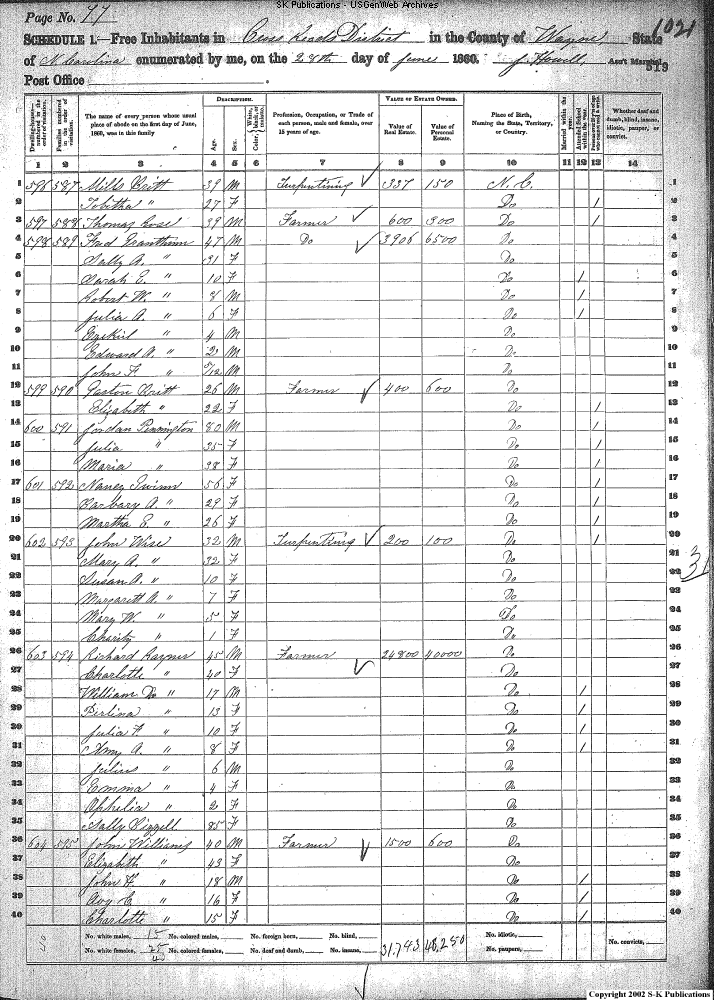 SK Publications - USGenWeb Archives
Page No. 77
1021
SCHEDULE 1.—Free Inhabitants in Cuss Leads District in the County of Wayne, State
of N Carolina enumerated by me, on the 28th day of June 1860. J. Howell, Ass't Marshal
519
Post Office
Dwelling-houses numbered in the order of visitation. Families numbered in the order of visitation. The name of every person whose usual place of abode on the first day of June, 1860, was in this family DESCRIPTION. Age. Sex. Color, White, black, or mulatto. Profession, Occupation, or Trade of each person, male and female, over 15 years of age. VALUE OF ESTATE OWNED. Value of Real Estate. Value of Personal Estate. Place of Birth, Naming the State, Territory, or Country. Married within the year. Attended School within the year. Persons over 20 y'rs of age who cannot read & write. Whether deaf and dumb, blind, insane, idiotic, pauper, or convict.
1 2 3 4 5 6 7 8 9 10 11 12 13 14
1 596 587 Mills Britt 39 M Turpintining 337 150 N. C. 1
2 Tobitha " 27 F Do / 2
3 597 588 Thomas Rose 39 M Farmer 600 300 Do / 3
4 598 589 47 M Do 3906 6500 Do 4
5 Sally A. " 31 F Do 5
6 Sarah E. " 10 F Do / 6
7 Robert W. " 8 M Do / 7
8 Julia A. " 6 F Do / 8
9 Ezekiel " 4 M Do 9
10 Edward A. " 2 M Do 10
11 John F. " /12 M Do 11
12 599 590 Gaston Britt 26 M Farmer 400 600 Do 12
13 Elizabeth " 22 F Do / 13
14 600 591 Jordan Pennington 80 M Do / 14
15 Julia " 35 F Do / 15
16 Maria " 38 F Do / 16
17 601 592 Nancy 56 F Do / 17
18 Barbary A. " 29 F Do / 18
19 Martha E. " 26 F Do / 19
20 602 593 John Wise 32 M Turpinting 200 100 Do / 20
21 Mary A. " 32 F Do 21
22 Susan A. " 10 F Do 22
23 Margarett A. " 7 F Do 23
24 Mary W. " 5 F Do 24
25 Charity " 1 F Do 25
26 603 594 Richard Rayner 45 M Farmer 24800 40000 Do 26
27 Charlotte " 40 F Do 27
28 William D. " 17 M Do / 28
29 Perlina " 13 F Do / 29
30 Julia F " 10 F Do / 30
31 Amy A. " 8 F Do / 31
32 Julius " 6 M Do 32
33 Emma " 4 F Do 33
34 Ophelia " 2 F Do 34
35 Sally 85 F Do 35
36 604 595 John Williams 40 M Farmer 1500 600 Do 36
37 Elizabeth " 43 F Do 37
38 John H. " 18 M Do / 38
39 Avy C " 16 F Do / 39
40 Charlotte " 15 F Do / 40
31
No. white males, 15 No. colored males, No. foreign born, No. blind, 31,743 48,250 No. idiotic, No. convicts,
No. white females, 25 No. colored females, No. deaf and dumb, No. insane, No. paupers,
40
Copyright 2002 S-K Publications